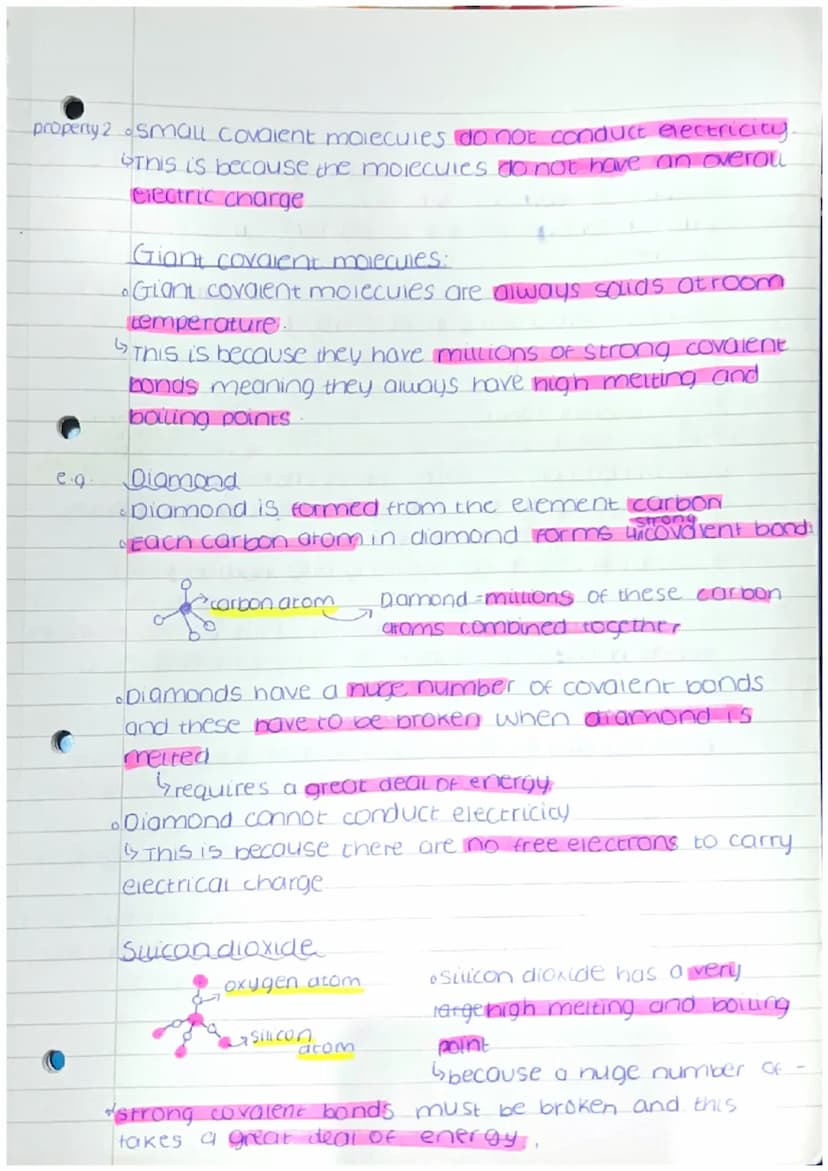 property 2 ∘small covalent molecules do not conduct electricity.
↳This is because the molecules do not have an overall
electric charge
Giant covalent molecules:
∘Giant covalent molecules are always solids at room
temperature.
↳This is because they have millions of strong covalent
bonds meaning they always have high melting and
boiling points.
e.g. Diamond
∘Diamond is formed from the element carbon
strong
∘Each carbon atom in diamond forms 4 covalent bonds
carbon atom
Diamond = millions of these carbon
atoms combined together
∘Diamonds have a huge number of covalent bonds
and these have to be broken when diamond is
melted
↳requires a great deal of energy
∘Diamond cannot conduct electricity
↳This is because there are no free electrons to carry
electrical charge
Silicon dioxide
oxygen atom
silicon
atom
∘silicon dioxide has a very
large high melting and boiling
point
↳because a huge number of -
strong covalent bonds must be broken and this
takes a great deal of energy.